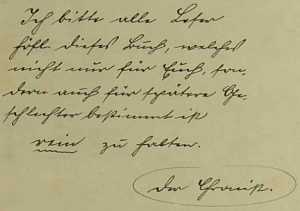 Ich bitte alle Leser
höfl. dieses Buch, welches
nicht nur für Euch, son-
dern auch für spätere Ge-
schlechter bestimmt ist
rein zu halten.
Der Chronist.